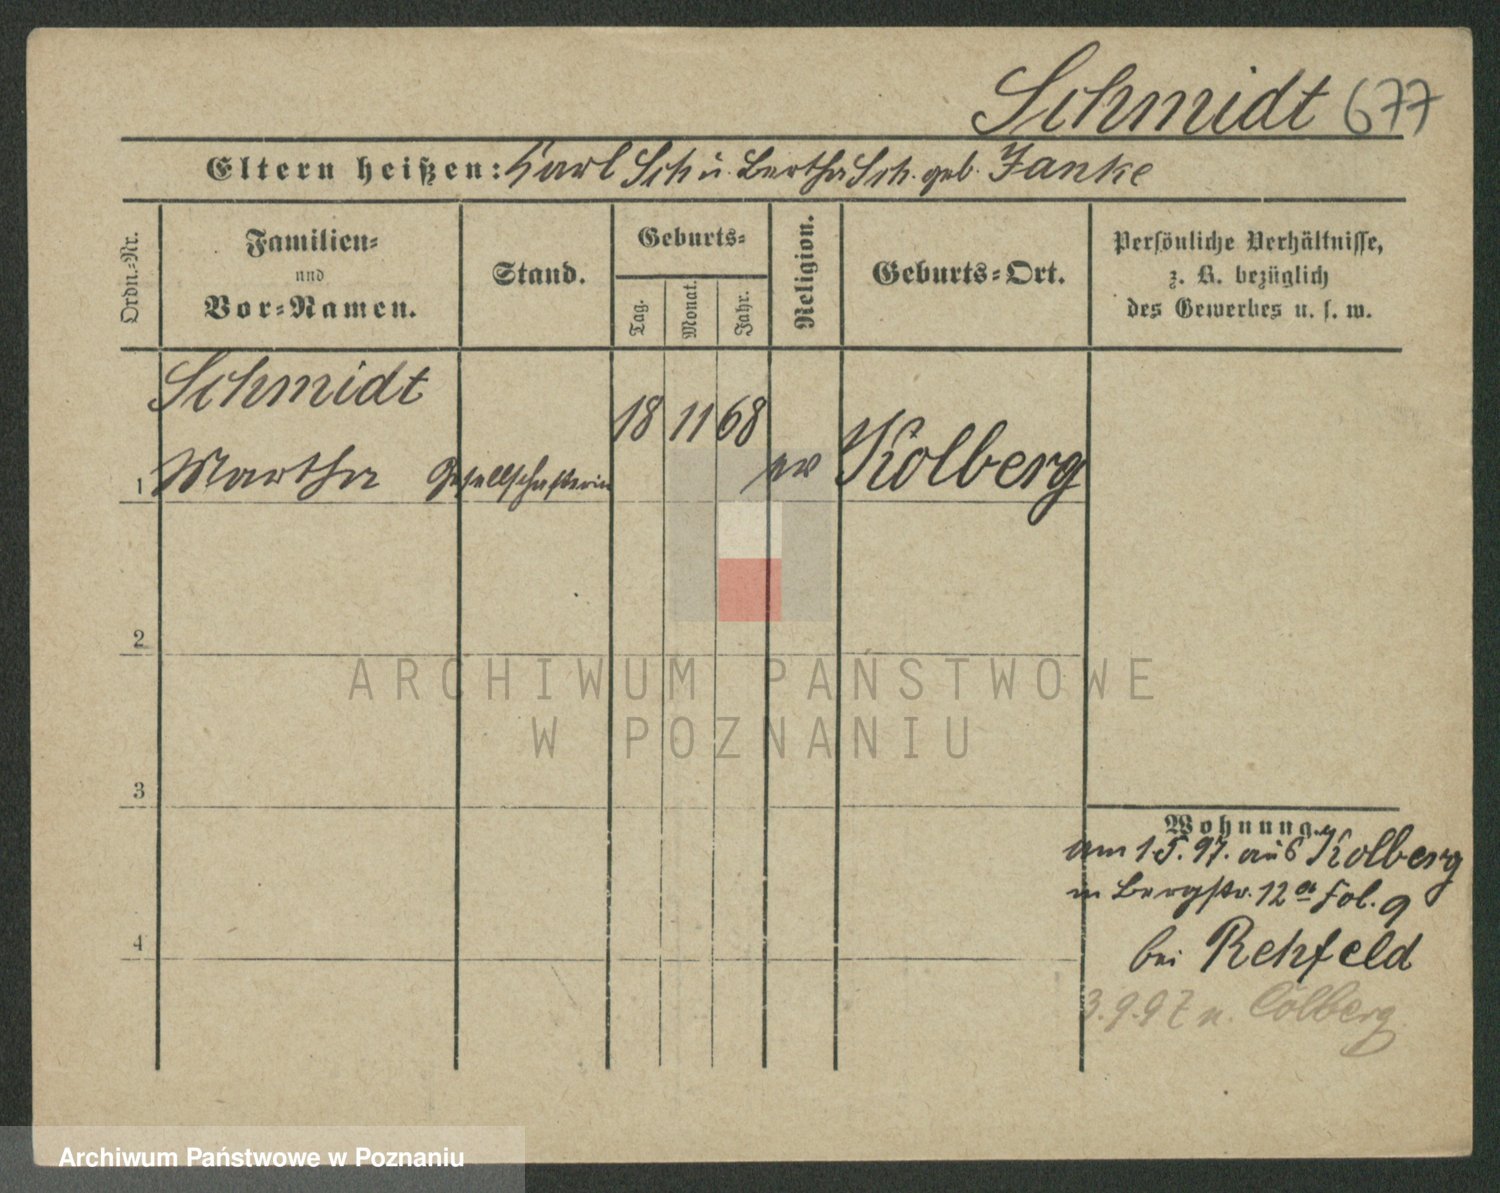 Schmidt 677
Eltern heißen: Karl Sch u. Bertha Sch. geb. Janke
Ordn.-Nr.
Familien-
und
Vor-Namen.
Stand.
Geburts-
Tag.
Monat.
Jahr.
Religion.
Geburts-Ort.
Persönliche Verhältnisse,
z. B. bezüglich
des Gewerbes u. s. w.
Schmidt
18 11 68
1 Martha Gesellschafterin ev Kolberg
2
ARCHIWUM PAŃSTWOWE
W POZNANIU
3
Wohnung.
am 1.5.97. aus Kolberg
in Bergstr. 12a Fol. 9
4
bei Rehfeld
3.9.97 n. Colberg
Archiwum Państwowe w Poznaniu